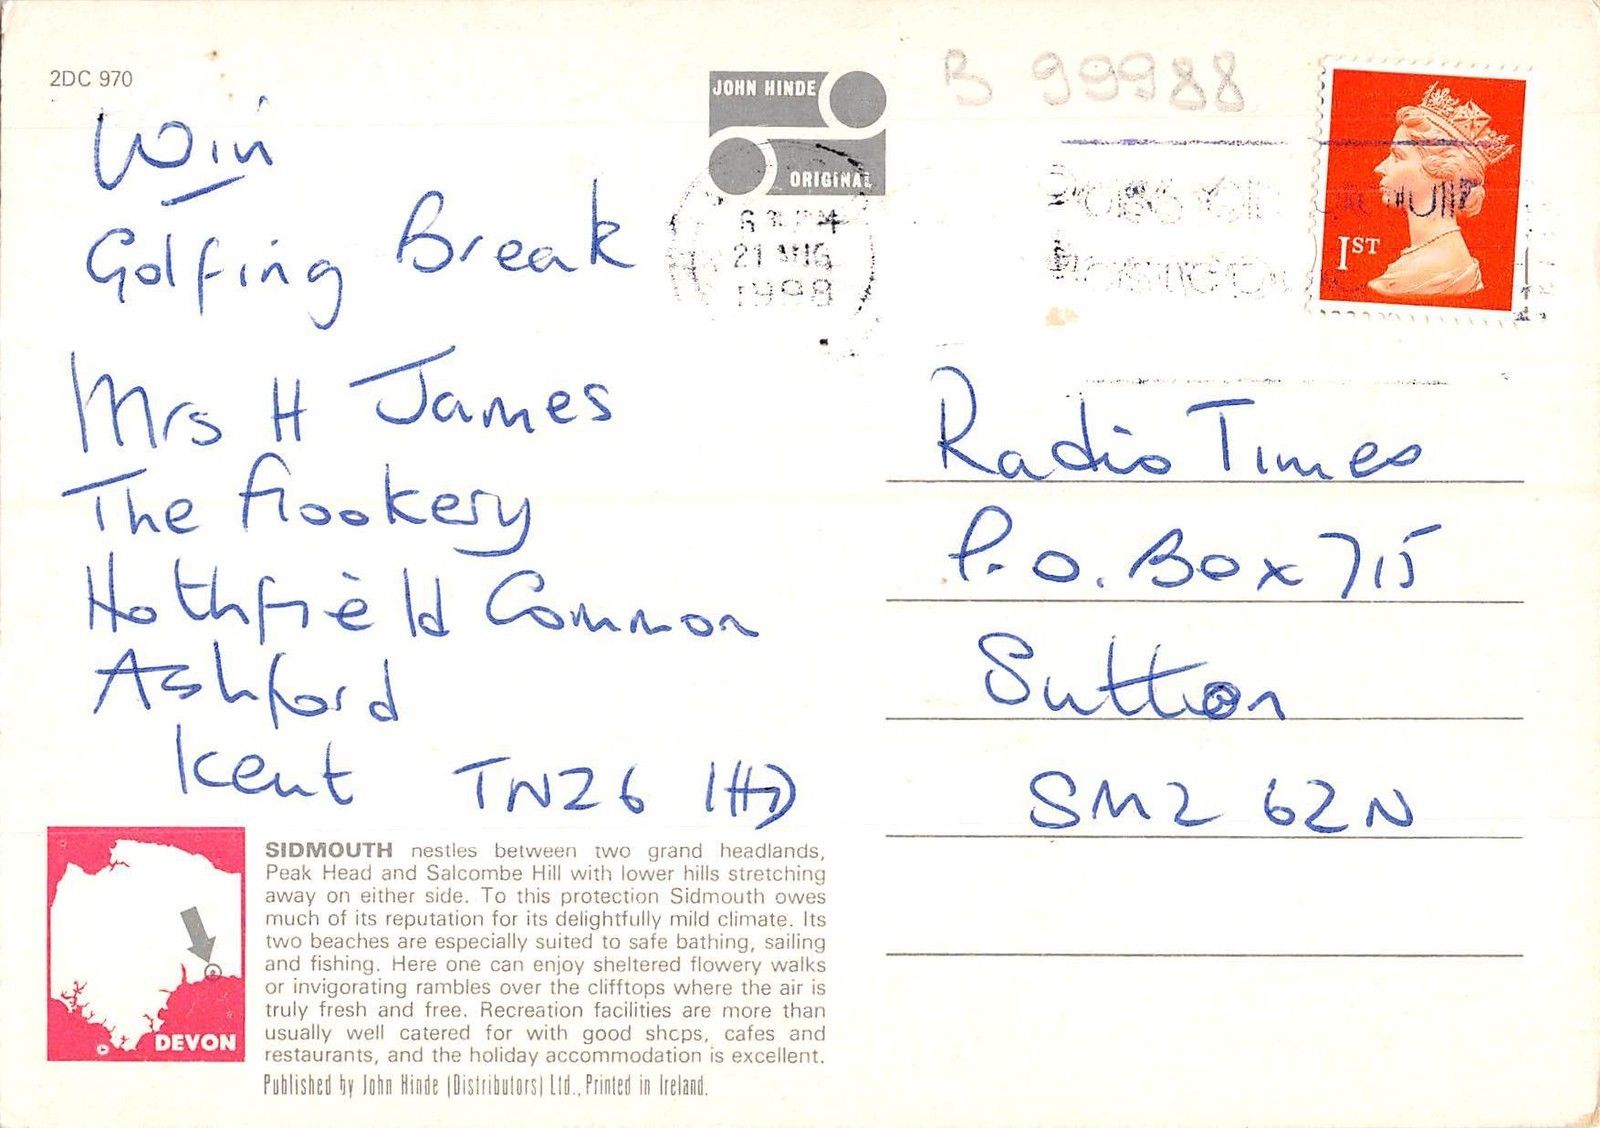 2DC 970
JOHN HINDE
ORIGINAL
B 99988
21 AUG
1998
1ST
Win
Golfing Break
Mrs H James
The Rookery
Hothfield Common
Ashford
Kent TN26 1HD
Radio Times
P.O. Box 715
Sutton
SM2 6ZN
DEVON
SIDMOUTH nestles between two grand headlands,
Peak Head and Salcombe Hill with lower hills stretching
away on either side. To this protection Sidmouth owes
much of its reputation for its delightfully mild climate. Its
two beaches are especially suited to safe bathing, sailing
and fishing. Here one can enjoy sheltered flowery walks
or invigorating rambles over the clifftops where the air is
truly fresh and free. Recreation facilities are more than
usually well catered for with good shops, cafes and
restaurants, and the holiday accommodation is excellent.
Published by John Hinde (Distributors) Ltd., Printed in Ireland.